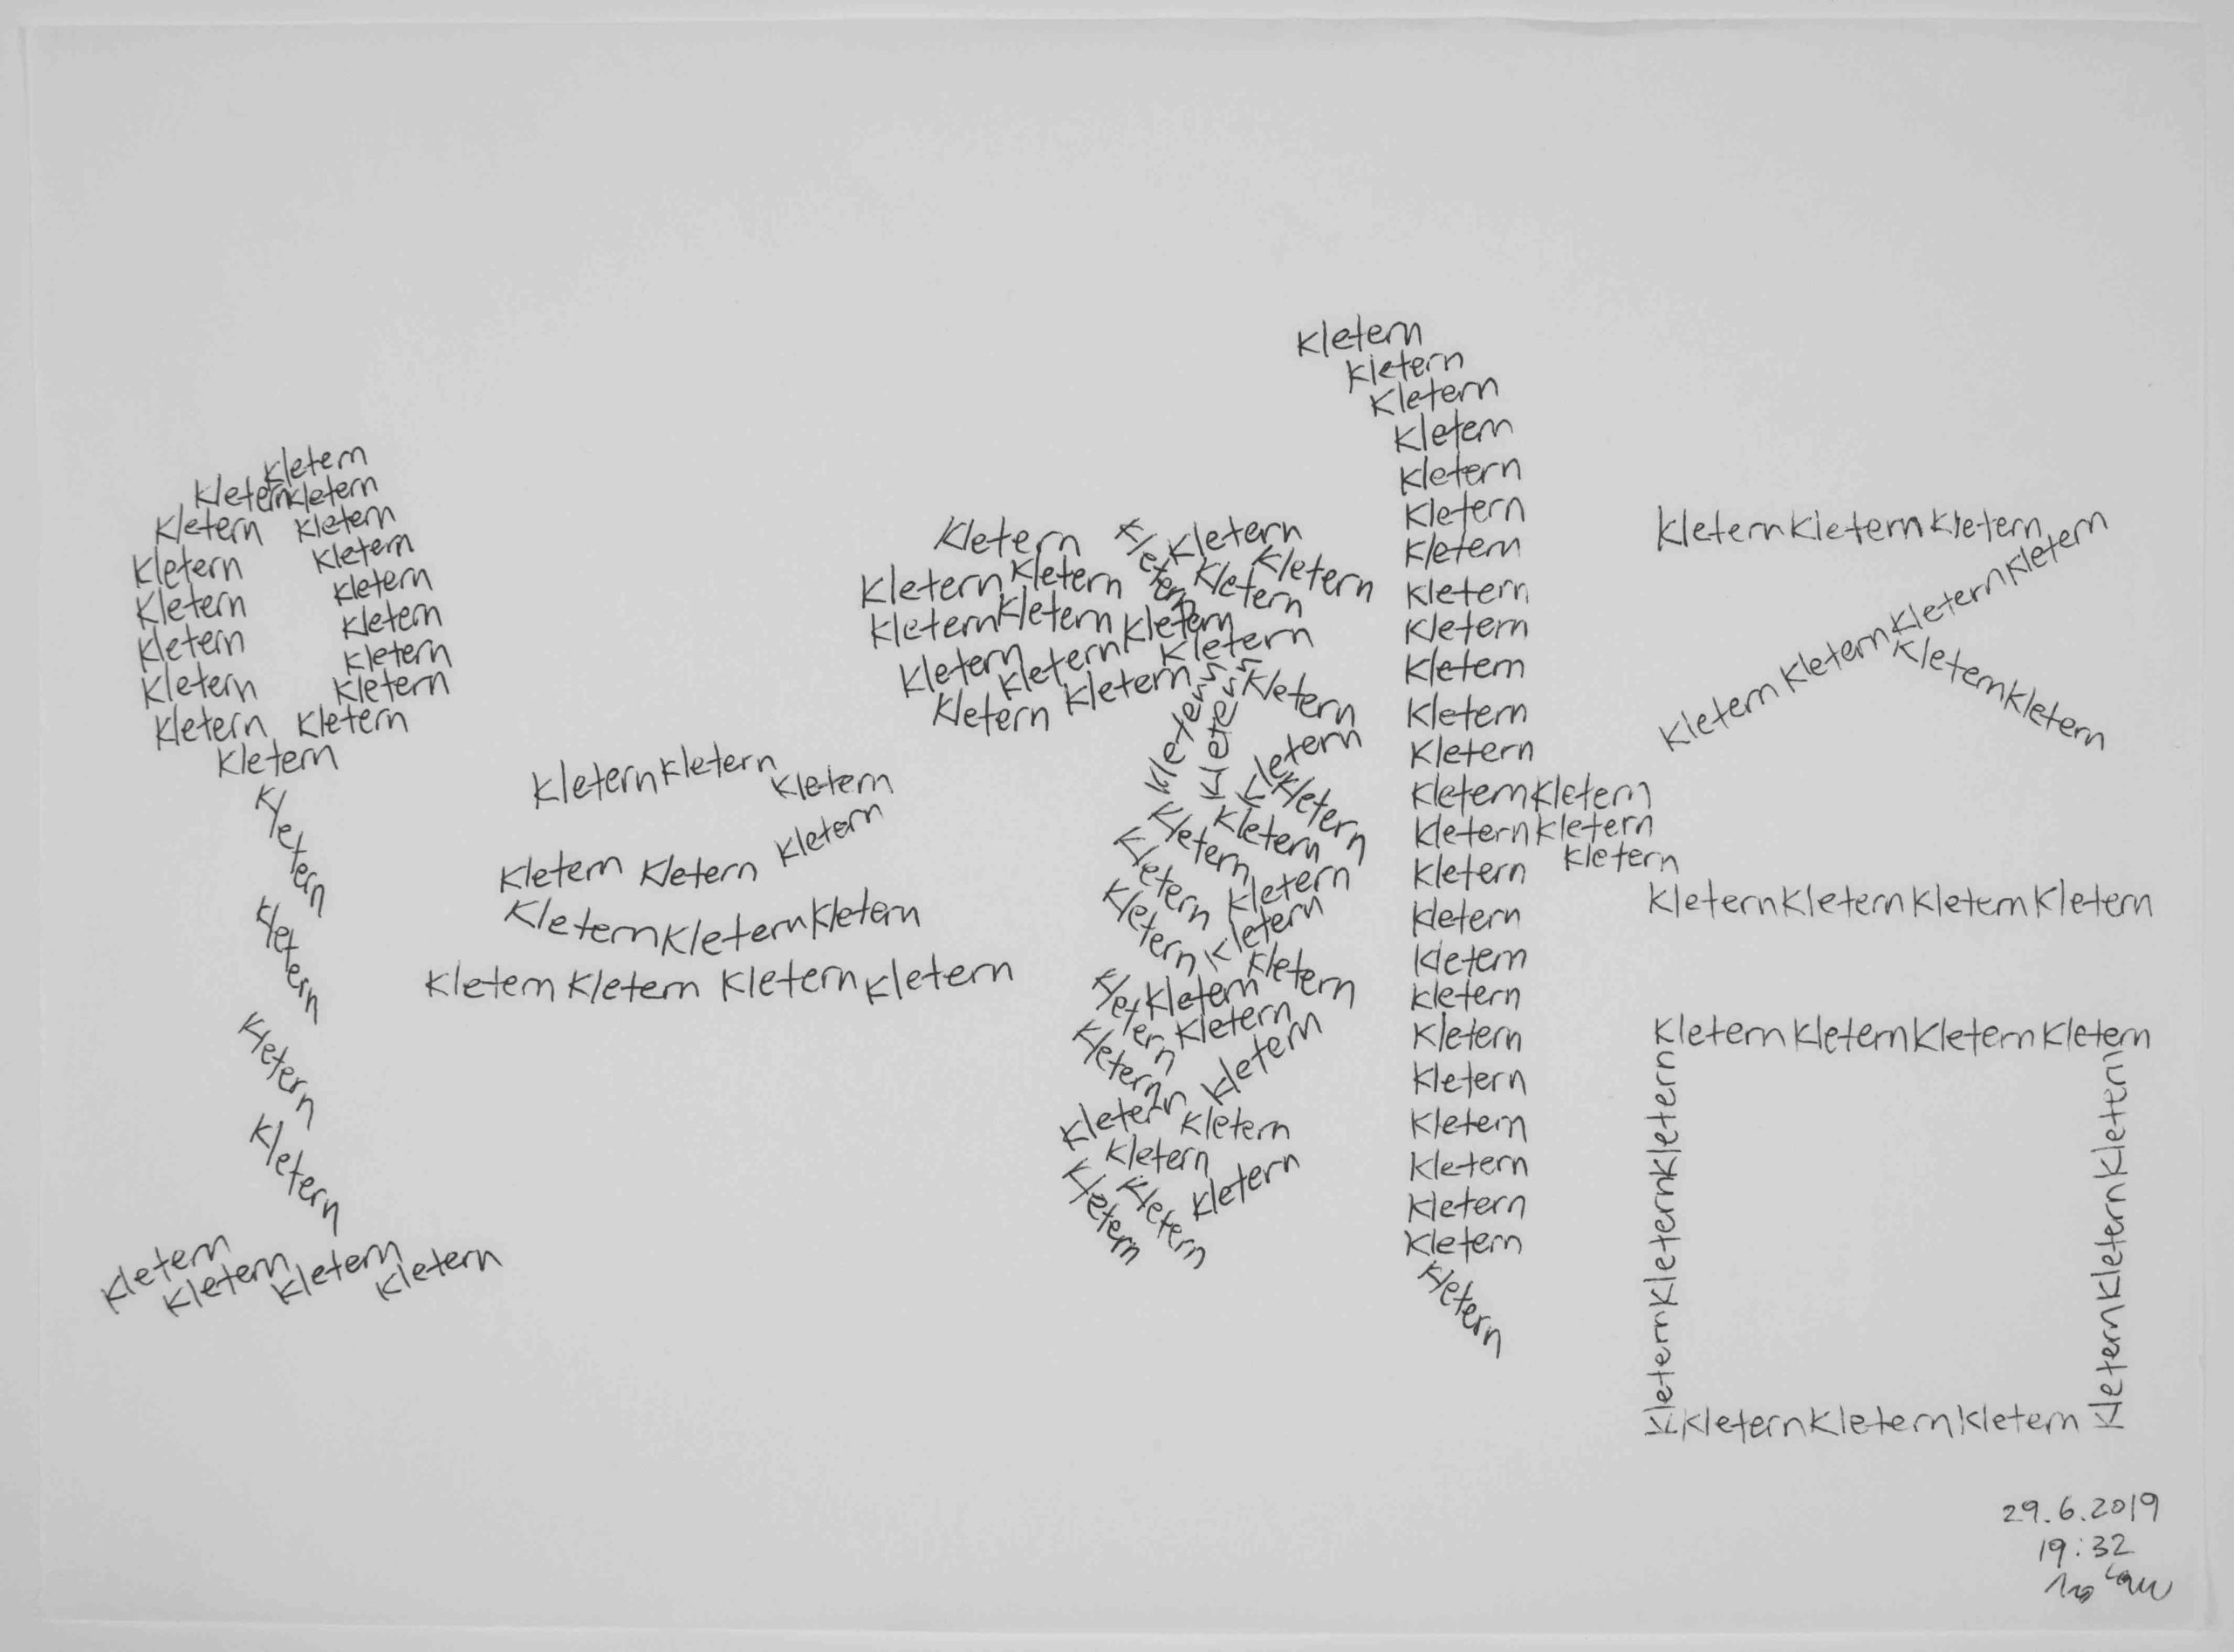 kletern
Kletern kletern
Kletern Kletern
Kletern
Kletern Kletern
Kletern Kletern
Kletern Kletern
Kletern Kletern
Kletern Kletern
Kletern Kletern
Kletern
Kletern
Kletern
Kletern
Kletern
Kletern Kletern Kletern Kletern
Kletern kletern Kletern
Kletern Kletern Kletern
Kletern Kletern Kletern
Kletern Kletern Kletern Kletern
Kletern Kletern Kletern
Kletern Kletern Kletern Kletern
Kletern Kletern Kletern
Kletern Kletern Kletern
Kletern Kletern
Kletern Kletern Kletern
Kletern Kletern
Kletern Kletern
Kletern Kletern
Kletern Kletern
Kletern Kletern
Kletern Kletern
Kletern Kletern
Kletern Kletern
Kletern Kletern
Kletern Kletern Kletern
Kletern
Kletern
Kletern
Kletern
Kletern
Kletern
Kletern
Kletern
Kletern
Kletern
Kletern
Kletern
Kletern Kletern
Kletern Kletern
Kletern Kletern
Kletern
Kletern
Kletern
Kletern
Kletern
Kletern
Kletern
Kletern
Kletern
Kletern
Kletern Kletern Kletern
Kletern Kletern Kletern Kletern
Kletern Kletern
Kletern Kletern Kletern Kletern
Kletern Kletern Kletern Kletern
Kletern Kletern Kletern
Kletern Kletern Kletern
Kletern Kletern Kletern
29.6.2019
19:32